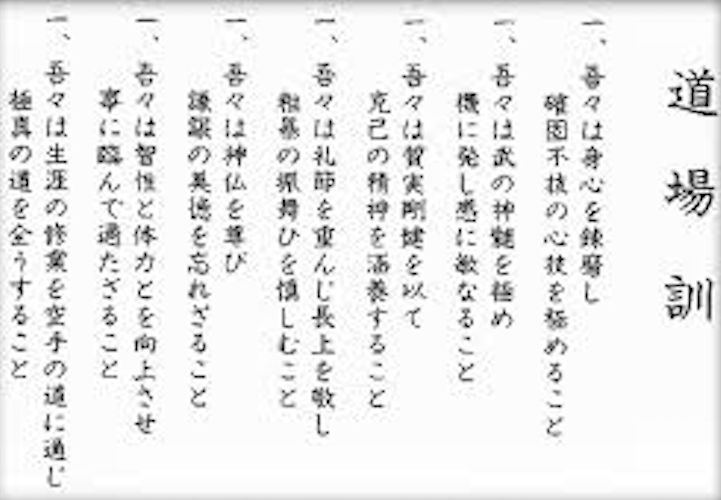 道場訓
一、吾々は身心を錬磨し
確固不抜の心技を極めること
一、吾々は武の神髄を極め
機に発し感に敏なること
一、吾々は質実剛健を以て
克己の精神を涵養すること
一、吾々は礼節を重んじ長上を敬し
粗暴の振舞ひを慎しむこと
一、吾々は神仏を尊び
謙譲の美徳を忘れざること
一、吾々は智性と体力とを向上させ
事に臨んで過たざること
一、吾々は生涯の修業を空手の道に通じ
極真の道を全うすること